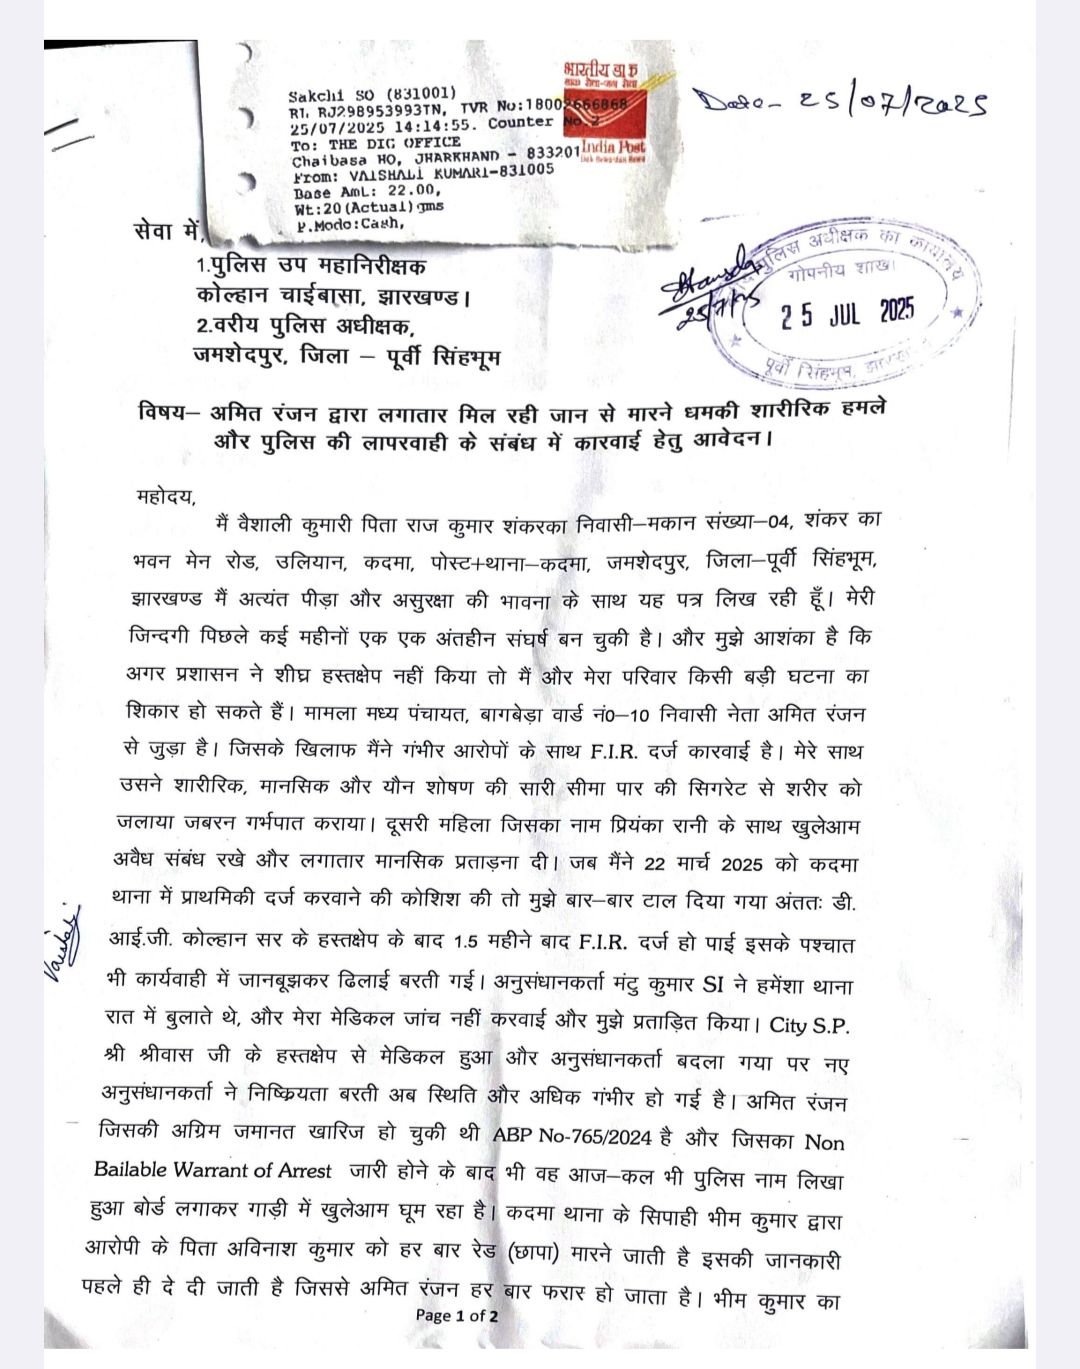 Sakchi SO (831001)
RL RJ298953993IN, IVR No:18002666868
25/07/2025 14:14:55. Counter No.2
To: THE DIG OFFICE
Chaibasa HO, JHARKHAND - 833201
From: VAISHALI KUMARI-831005
Base Amt: 22.00,
Wt:20(Actual)gms
P.Mode:Cash,
भारतीय डाक
डाक सेवा-जन सेवा
India Post
Date- 25/07/2025
पुलिस अधीक्षक का कार्यालय
गोपनीय शाखा
25 JUL 2025
पूर्वी सिंहभूम,
25/7/25
सेवा में,
1.पुलिस उप महानिरीक्षक
कोल्हान चाईबासा, झारखण्ड।
2.वरीय पुलिस अधीक्षक,
जमशेदपुर, जिला – पूर्वी सिंहभूम
विषय– अमित रंजन द्वारा लगातार मिल रही जान से मारने धमकी शारीरिक हमले
और पुलिस की लापरवाही के संबंध में कारवाई हेतु आवेदन।
महोदय,
मैं वैशाली कुमारी पिता राज कुमार शंकरका निवासी–मकान संख्या–04, शंकर का
भवन मेन रोड, उलियान, कदमा, पोस्ट+थाना–कदमा, जमशेदपुर, जिला–पूर्वी सिंहभूम,
झारखण्ड मैं अत्यंत पीड़ा और असुरक्षा की भावना के साथ यह पत्र लिख रही हूँ। मेरी
जिन्दगी पिछले कई महीनों एक एक अंतहीन संघर्ष बन चुकी है। और मुझे आशंका है कि
अगर प्रशासन ने शीघ्र हस्तक्षेप नहीं किया तो मैं और मेरा परिवार किसी बड़ी घटना का
शिकार हो सकते हैं। मामला मध्य पंचायत, बागबेड़ा वार्ड नं0–10 निवासी नेता अमित रंजन
से जुड़ा है। जिसके खिलाफ मैंने गंभीर आरोपों के साथ F.I.R. दर्ज कारवाई है। मेरे साथ
उसने शारीरिक, मानसिक और यौन शोषण की सारी सीमा पार की सिगरेट से शरीर को
जलाया जबरन गर्भपात कराया। दूसरी महिला जिसका नाम प्रियंका रानी के साथ खुलेआम
अवैध संबंध रखे और लगातार मानसिक प्रताड़ना दी। जब मैंने 22 मार्च 2025 को कदमा
थाना में प्राथमिकी दर्ज करवाने की कोशिश की तो मुझे बार–बार टाल दिया गया अंततः डी.
आई.जी. कोल्हान सर के हस्तक्षेप के बाद 1.5 महीने बाद F.I.R. दर्ज हो पाई इसके पश्चात
भी कार्यवाही में जानबूझकर ढिलाई बरती गई। अनुसंधानकर्ता मंटु कुमार SI ने हमेंशा थाना
रात में बुलाते थे, और मेरा मेडिकल जांच नहीं करवाई और मुझे प्रताड़ित किया। City S.P.
श्री श्रीवास जी के हस्तक्षेप से मेडिकल हुआ और अनुसंधानकर्ता बदला गया पर नए
अनुसंधानकर्ता ने निष्क्रियता बरती अब स्थिति और अधिक गंभीर हो गई है। अमित रंजन
जिसकी अग्रिम जमानत खारिज हो चुकी थी ABP No-765/2024 है और जिसका Non
Bailable Warrant of Arrest जारी होने के बाद भी वह आज–कल भी पुलिस नाम लिखा
हुआ बोर्ड लगाकर गाड़ी में खुलेआम घूम रहा है। कदमा थाना के सिपाही भीम कुमार द्वारा
आरोपी के पिता अविनाश कुमार को हर बार रेड (छापा) मारने जाती है इसकी जानकारी
पहले ही दे दी जाती है जिससे अमित रंजन हर बार फरार हो जाता है। भीम कुमार का
Vaishali
Page 1 of 2